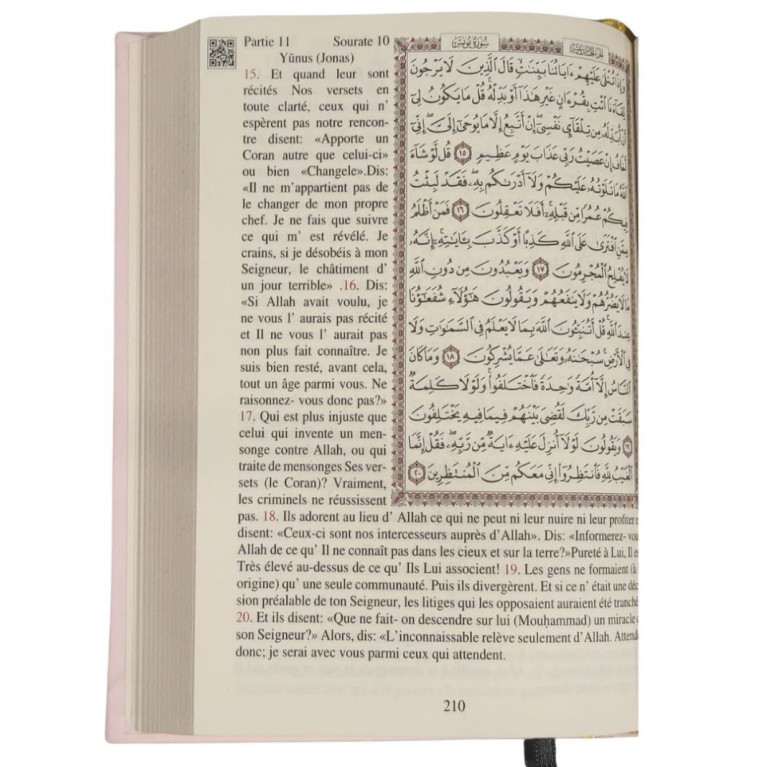 Partie 11 Sourate 10
Yūnus (Jonas)
15. Et quand leur sont
récités Nos versets en
toute clarté, ceux qui n’
espèrent pas notre rencon-
tre disent: «Apporte un
Coran autre que celui-ci»
ou bien «Changele».Dis:
«Il ne m’appartient pas de
le changer de mon propre
chef. Je ne fais que suivre
ce qui m’ est révélé. Je
crains, si je désobéis à mon
Seigneur, le châtiment d’
un jour terrible» .16. Dis:
«Si Allah avait voulu, je
ne vous l’ aurais pas récité
et Il ne vous l’ aurait pas
non plus fait connaître. Je
suis bien resté, avant cela,
tout un âge parmi vous. Ne
raisonnez- vous donc pas?»
17. Qui est plus injuste que
celui qui invente un men-
songe contre Allah, ou qui
traite de mensonges Ses ver-
sets (le Coran)? Vraiment,
les criminels ne réussissent
pas. 18. Ils adorent au lieu d’ Allah ce qui ne peut ni leur nuire ni leur profiter e
disent: «Ceux-ci sont nos intercesseurs auprès d’Allah». Dis: «Informerez- vou
Allah de ce qu’ Il ne connaît pas dans les cieux et sur la terre?»Pureté à Lui, Il e
Très élevé au-dessus de ce qu’ Ils Lui associent! 19. Les gens ne formaient (à
origine) qu’ une seule communauté. Puis ils divergèrent. Et si ce n’ était une déc
sion préalable de ton Seigneur, les litiges qui les opposaient auraient été tranché
20. Et ils disent: «Que ne fait- on descendre sur lui (Mouḥammad) un miracle d
son Seigneur?» Alors, dis: «L’inconnaissable relève seulement d’Allah. Attend
donc; je serai avec vous parmi ceux qui attendent.
سُورَةُ يُونُسَ
وَإِذَا تُتْلَىٰ عَلَيْهِمْ ءَايَاتُنَا بَيِّنَٰتٍ قَالَ ٱلَّذِينَ لَا يَرْجُونَ
لِقَآءَنَا ٱئْتِ بِقُرْءَانٍ غَيْرِ هَٰذَآ أَوْ بَدِّلْهُ ۚ قُلْ مَا يَكُونُ لِىٓ
أَنْ أُبَدِّلَهُۥ مِن تِلْقَآئِ نَفْسِىٓ ۖ إِنْ أَتَّبِعُ إِلَّا مَا يُوحَىٰٓ إِلَىَّ ۖ إِنِّىٓ
أَخَافُ إِنْ عَصَيْتُ رَبِّى عَذَابَ يَوْمٍ عَظِيمٍ ١٥ قُل لَّوْ شَآءَ
ٱللَّهُ مَا تَلَوْتُهُۥ عَلَيْكُمْ وَلَآ أَدْرَىٰكُم بِهِۦ ۖ فَقَدْ لَبِثْتُ
فِيكُمْ عُمُرًا مِّن قَبْلِهِۦٓ ۚ أَفَلَا تَعْقِلُونَ ١٦ فَمَنْ أَظْلَمُ
مِمَّنِ ٱفْتَرَىٰ عَلَى ٱللَّهِ كَذِبًا أَوْ كَذَّبَ بِـَٔايَٰتِهِۦٓ ۚ إِنَّهُۥ
لَا يُفْلِحُ ٱلْمُجْرِمُونَ ١٧ وَيَعْبُدُونَ مِن دُونِ ٱللَّهِ
مَا لَا يَضُرُّهُمْ وَلَا يَنفَعُهُمْ وَيَقُولُونَ هَٰٓؤُلَآءِ شُفَعَٰٓؤُنَا
عِندَ ٱللَّهِ ۚ قُلْ أَتُنَبِّـُٔونَ ٱللَّهَ بِمَا لَا يَعْلَمُ فِى ٱلسَّمَٰوَٰتِ وَلَا
فِى ٱلْأَرْضِ ۚ سُبْحَٰنَهُۥ وَتَعَٰلَىٰ عَمَّا يُشْرِكُونَ ١٨ وَمَا كَانَ
ٱلنَّاسُ إِلَّآ أُمَّةً وَٰحِدَةً فَٱخْتَلَفُوا۟ ۚ وَلَوْلَا كَلِمَةٌ
سَبَقَتْ مِن رَّبِّكَ لَقُضِىَ بَيْنَهُمْ فِيمَا فِيهِ يَخْتَلِفُونَ
١٩ وَيَقُولُونَ لَوْلَآ أُنزِلَ عَلَيْهِ ءَايَةٌ مِّن رَّبِّهِۦ ۖ فَقُلْ إِنَّمَا
ٱلْغَيْبُ لِلَّهِ فَٱنتَظِرُوٓا۟ إِنِّى مَعَكُم مِّنَ ٱلْمُنتَظِرِينَ ٢٠
210